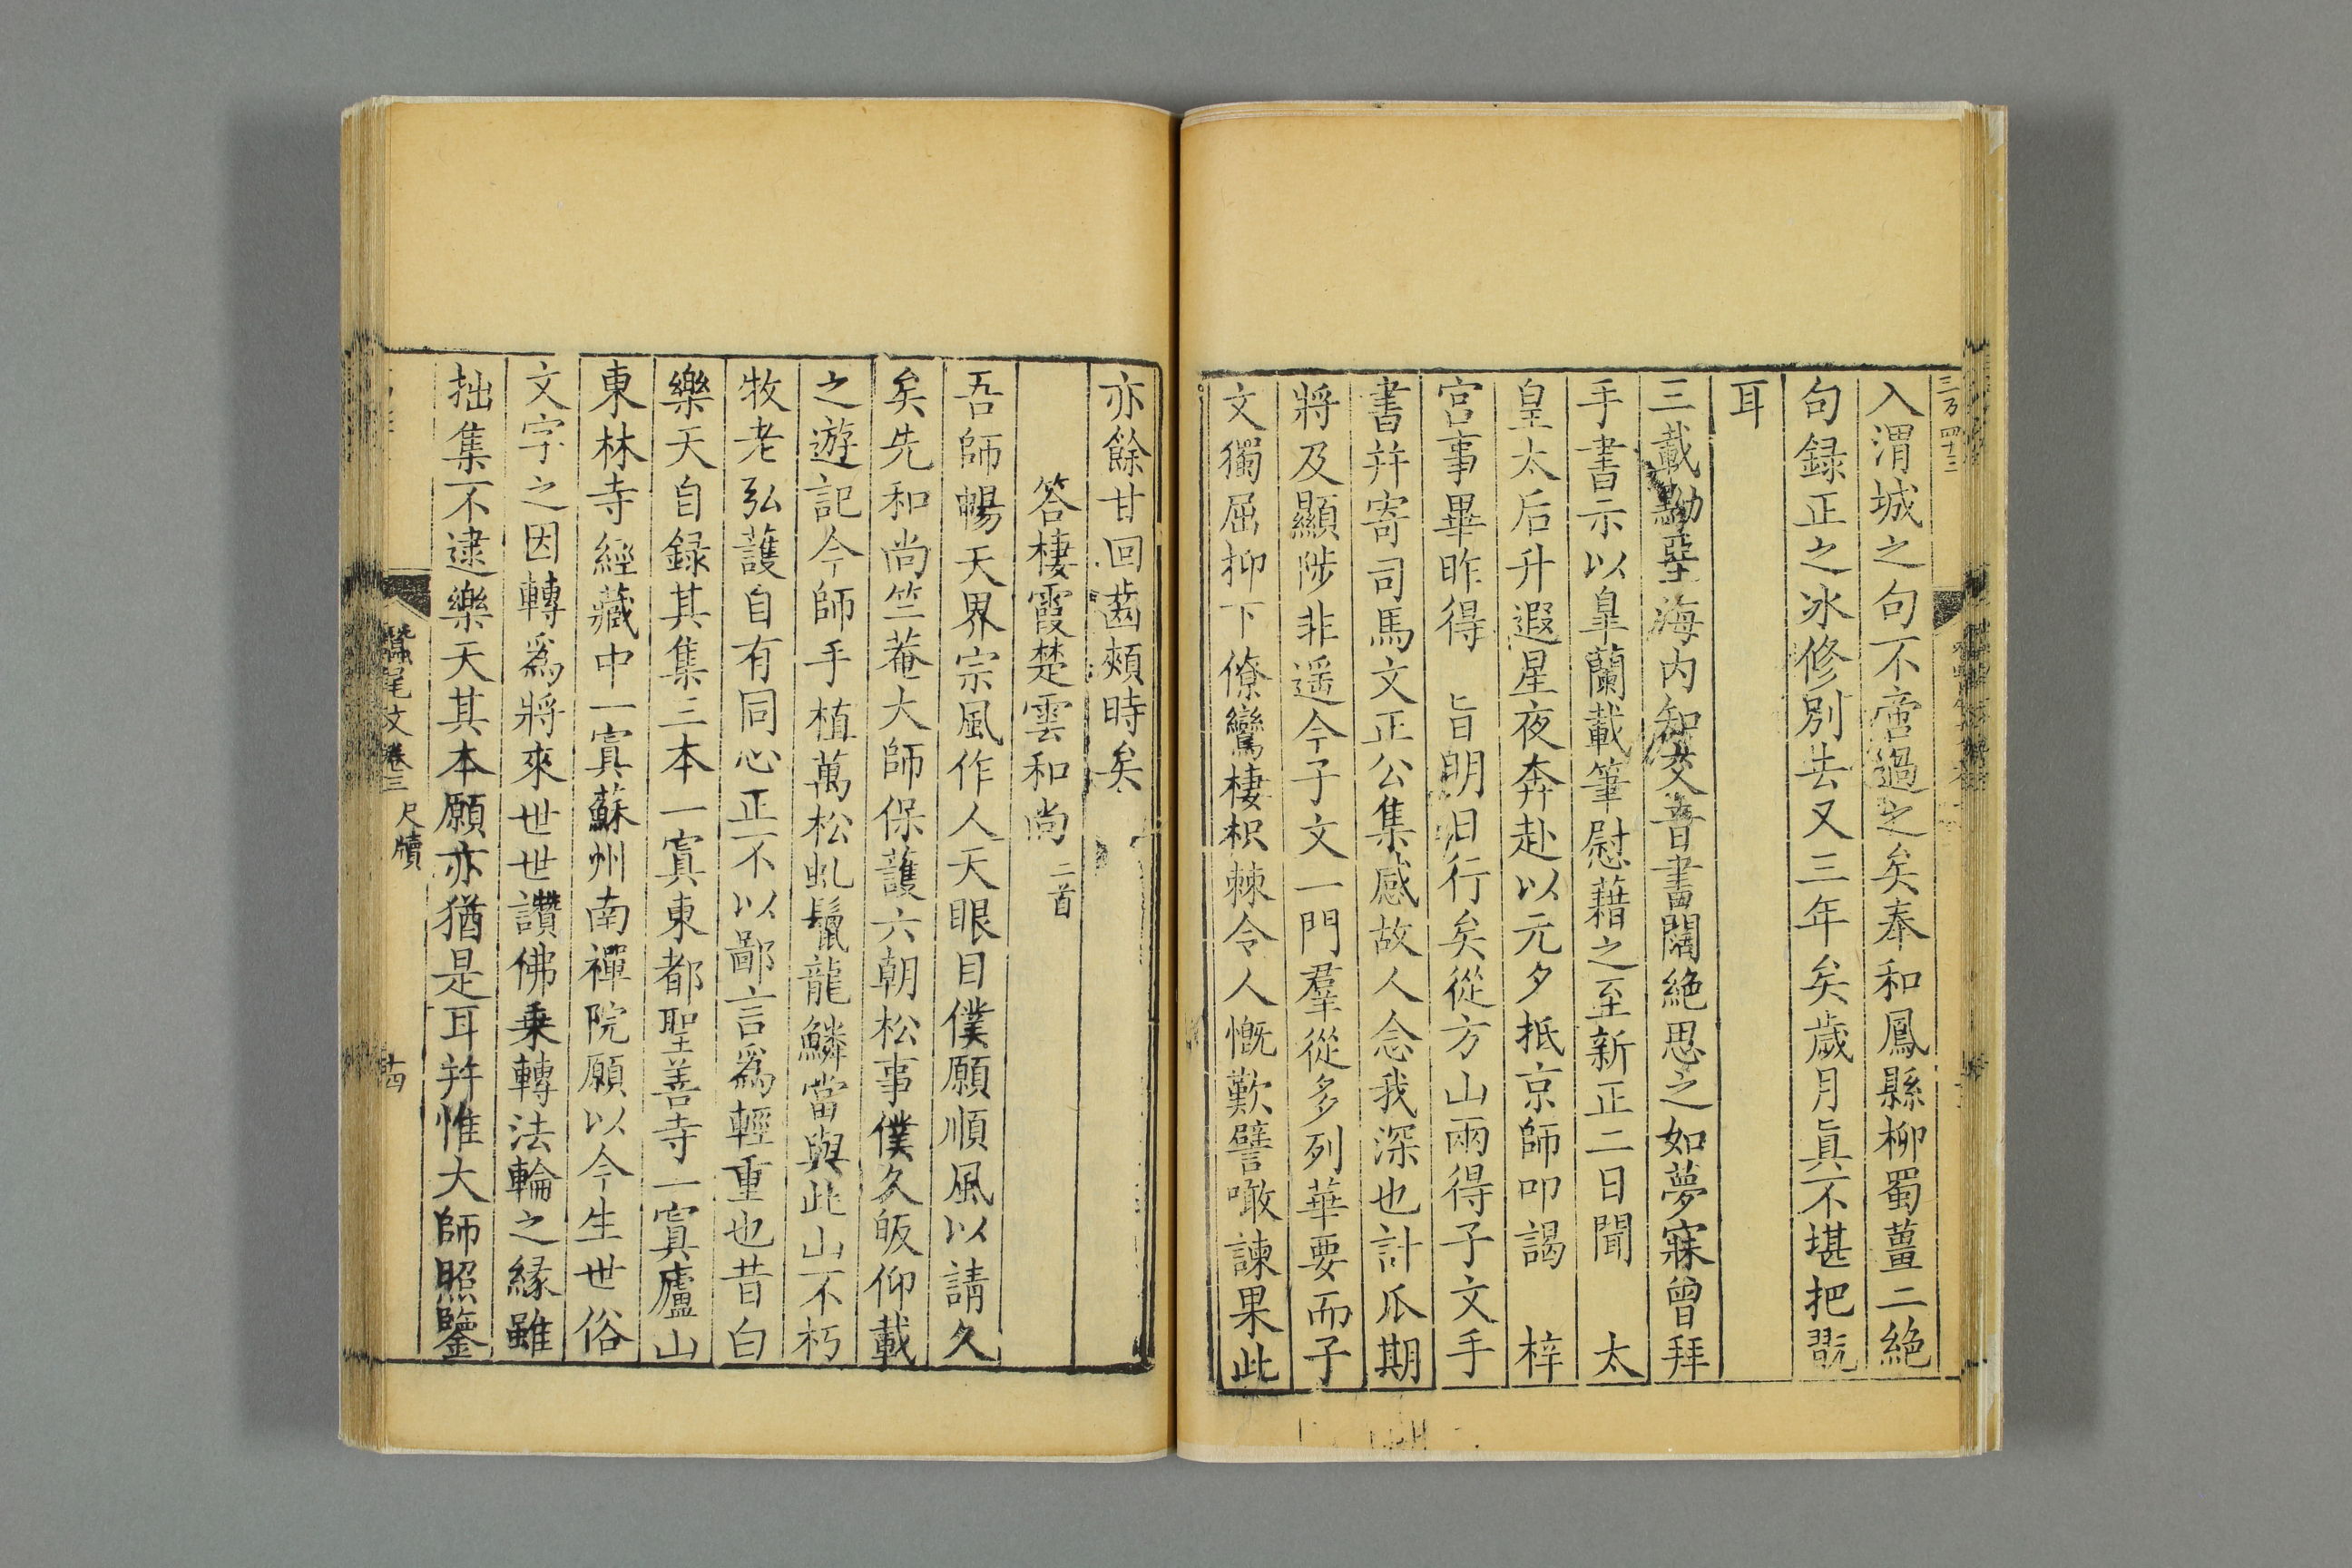 三万四十三
入渭城之句不啻過之矣奉和鳳縣柳蜀薑二絶
句録正之冰修别去又三年矣歲月眞不堪把翫
耳
三載黝堊海内知交音書闊絶思之如夢寐曾拜
手書示以臯蘭載筆慰藉之至新正二日聞　太
皇太后升遐星夜奔赴以元夕抵京師叩謁　梓
宫事畢昨得　旨明日行矣從方山兩得子文手
書并寄司馬文正公集感故人念我深也計瓜期
將及顯陟非遥今子文一門羣從多列華要而子
文獨屈抑下僚鸞棲枳棘令人慨歎譬噉諫果此
亦餘甘回齒頰時矣
答棲霞楚雲和尚二首
吾師暢天界宗風作人天眼目僕願順風以請久
矣先和尚竺菴大師保護六朝松事僕久皈仰載
之遊記今師手植萬松虬鬛龍鱗當與此山不朽
牧老弘護自有同心正不以鄙言爲輕重也昔白
樂天自録其集三本一寘東都聖善寺一寘廬山
東林寺經藏中一寘蘇州南禪院願以今生世俗
文字之因轉爲將來世世讚佛乗轉法輪之緣雖
拙集不逮樂天其本願亦猶是耳并惟大師照鑒
蠶尾文卷三 尺牘
十四